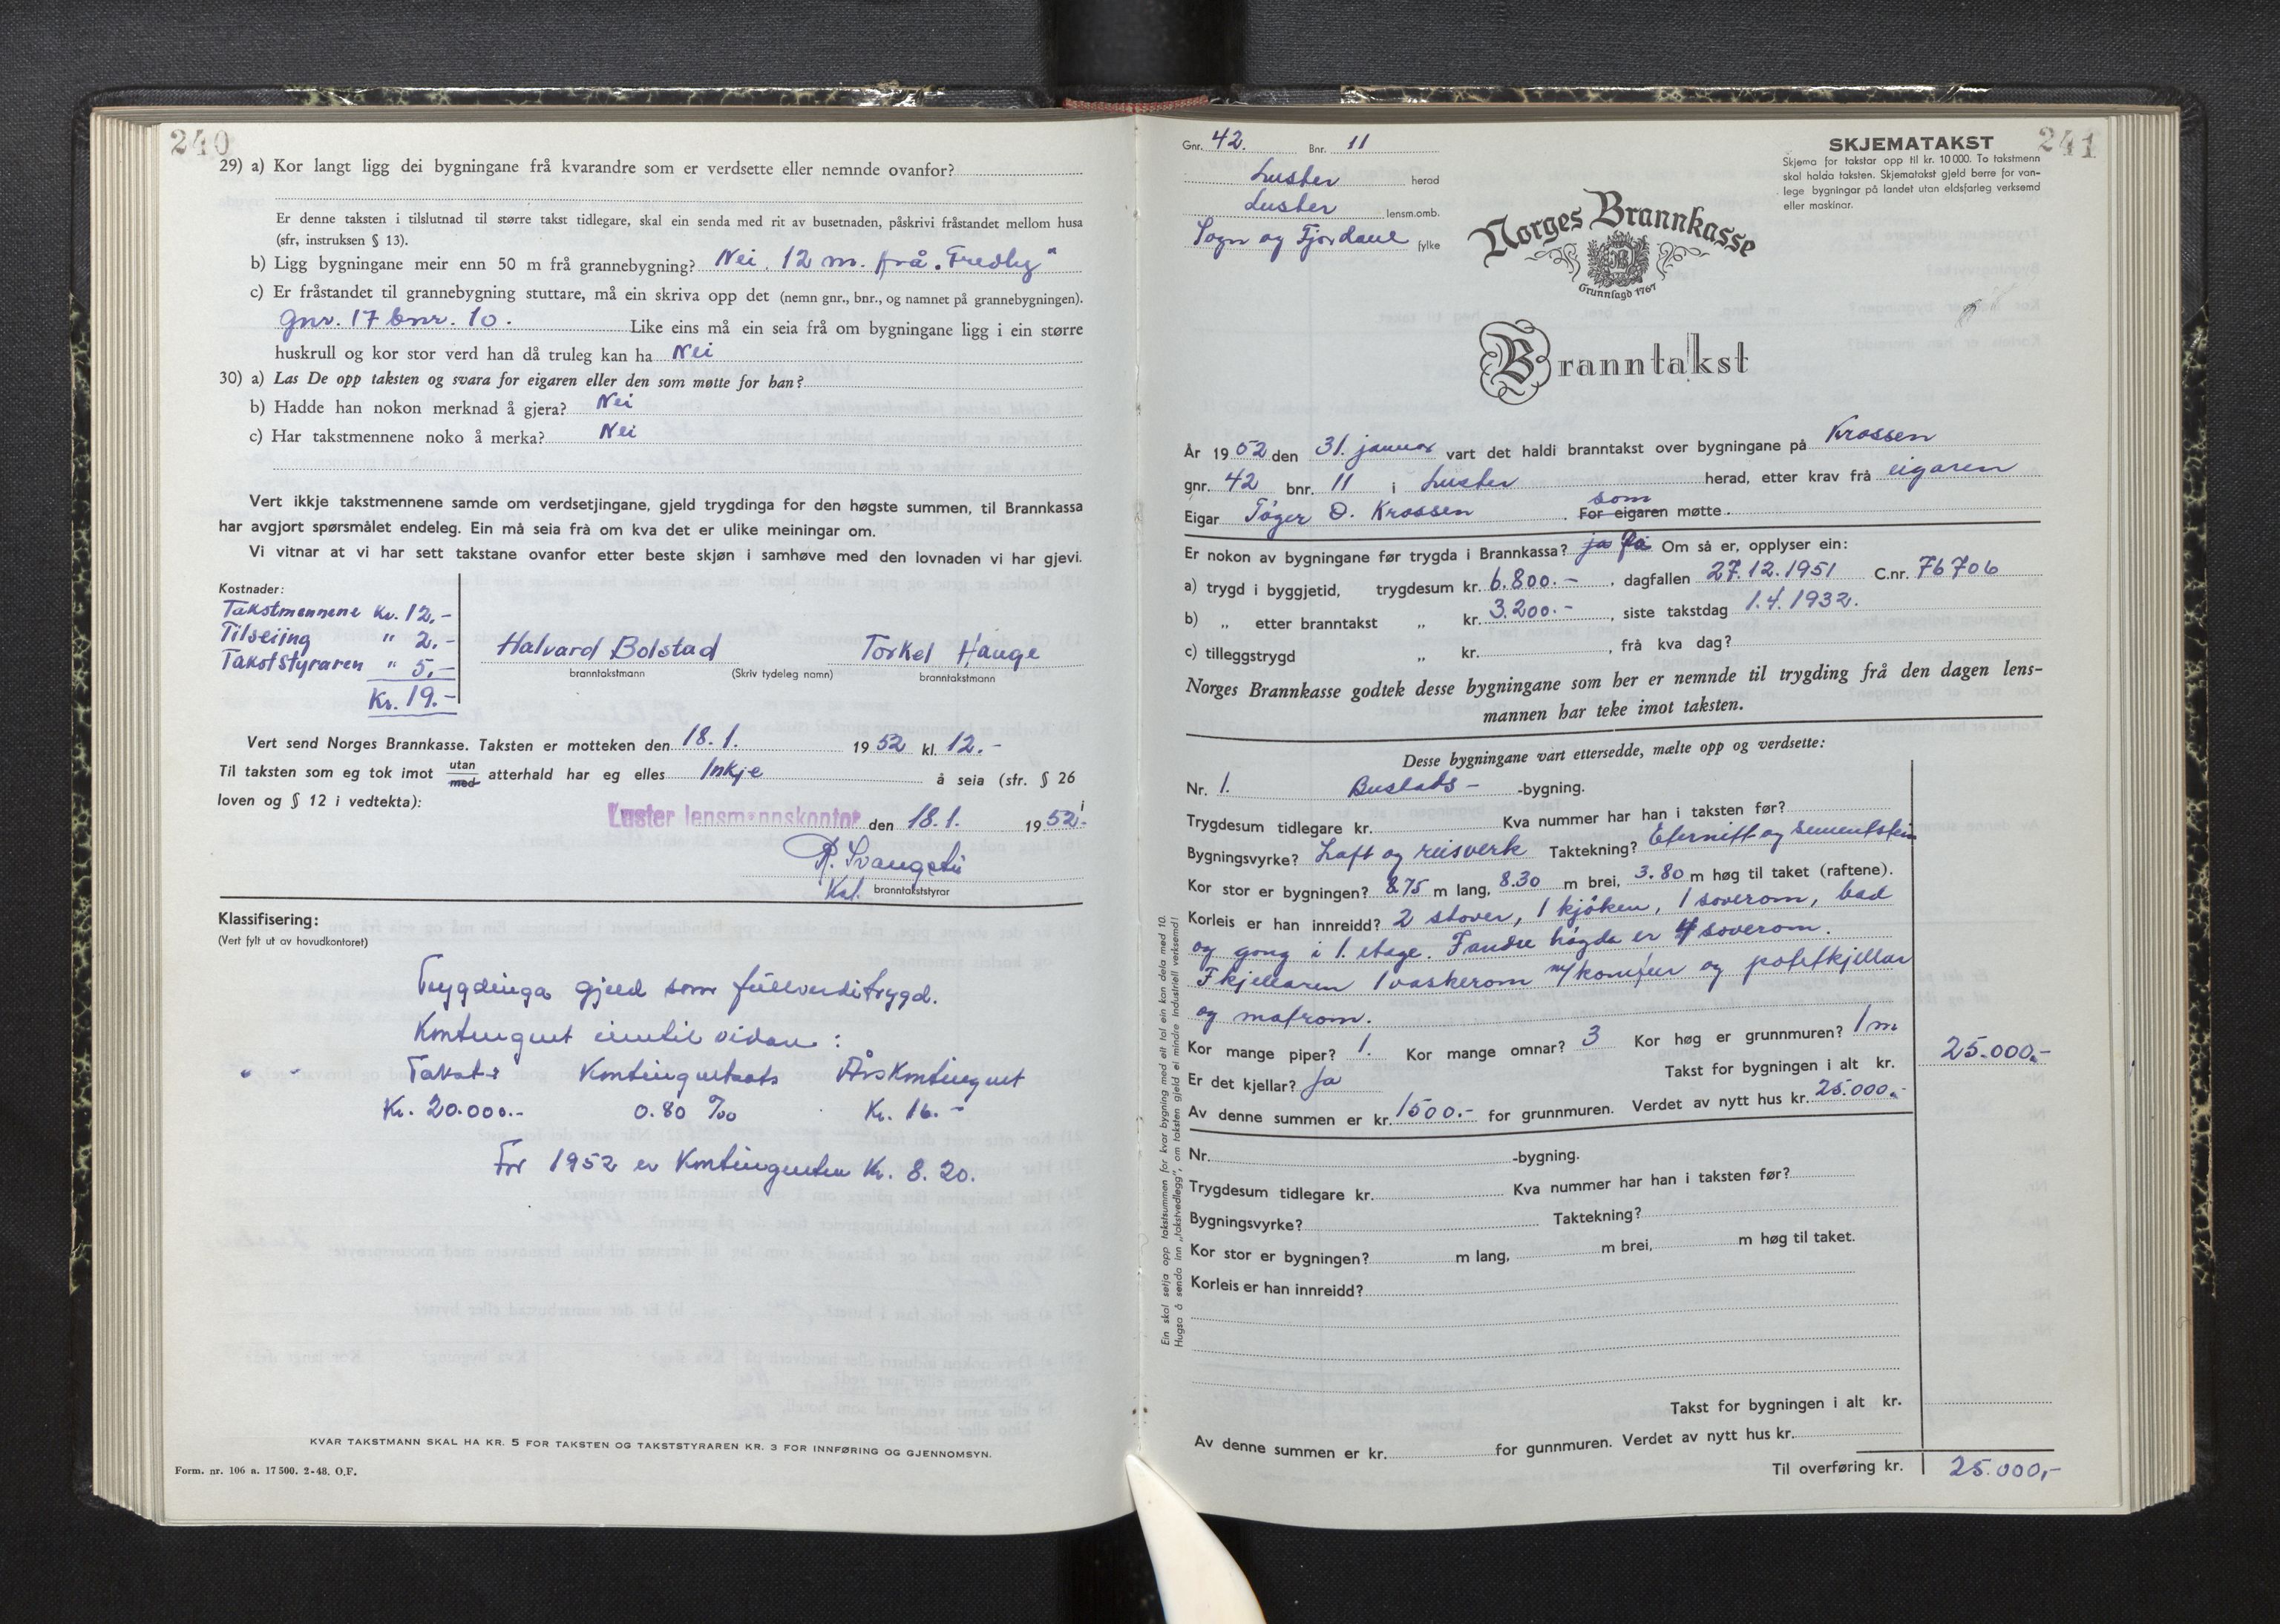 240
29) a) Kor langt ligg dei bygningane frå kvarandre som er verdsette eller nemnde ovanfor?
Er denne taksten i tilslutnad til større takst tidlegare, skal ein senda med rit av busetnaden, påskrivi fråstandet mellom husa
(sfr, instruksen § 13).
b) Ligg bygningane meir enn 50 m frå grannebygning? Nei, 12 m. frå "Fredly"
c) Er fråstandet til grannebygning stuttare, må ein skriva opp det (nemn gnr., bnr., og namnet på grannebygningen).
gnr. 17 bnr. 10. Like eins må ein seia frå om bygningane ligg i ein større
huskrull og kor stor verd han då truleg kan ha Nei
30) a) Las De opp taksten og svara for eigaren eller den som møtte for han?
b) Hadde han nokon merknad å gjera? Nei
c) Har takstmennene noko å merka? Nei
Vert ikkje takstmennene samde om verdsetjingane, gjeld trygdinga for den høgste summen, til Brannkassa
har avgjort spørsmålet endeleg. Ein må seia frå om kva det er ulike meiningar om.
Vi vitnar at vi har sett takstane ovanfor etter beste skjøn i samhøve med den lovnaden vi har gjevi.
Kostnader:
Takstmennene Kr. 12,-
Tilseiing " 2,-
Takststyraren " 5,-
Kr. 19.-
Halvard Bolstad Torkel Hauge
branntakstmann (Skriv tydeleg namn) branntakstmann
Vert send Norges Brannkasse. Taksten er motteken den 18.1. 1952 kl. 12.-
Til taksten som eg tok imot utan med atterhald har eg elles Inkje å seia (sfr. § 26
loven og § 12 i vedtekta):
Luster lensmannskontor den 18.1. 1952.
Kst. branntakststyrar
Klassifisering:
(Vert fylt ut av hovudkontoret)
Trygdinga gjeld som fullverditrygd.
Kontingent inntil vidare:
Takst: Kontingentsats Årskontingent
Kr. 20.000.- 0.80 ‰ Kr. 16.-
For 1952 er Kontingenten Kr. 8.20.
KVAR TAKSTMANN SKAL HA KR. 5 FOR TAKSTEN OG TAKSTSTYRAREN KR. 3 FOR INNFØRING OG GJENNOMSYN.
Form. nr. 106 a. 17500. 2-48. O.F.
241
Gnr. 42. Bnr. 11
Luster herad
Luster lensm.omb.
Sogn og Fjordane fylke
SKJEMATAKST
Skjema for takstar opp til kr. 10000. To takstmenn
skal halda taksten. Skjematakst gjeld berre for van-
lege bygningar på landet utan eldsfarleg verksemd
eller maskinar.
Norges Brannkasse
Grunnlagd 1767
Branntakst
År 1952 den 31. januar vart det haldi branntakst over bygningane på Krossen
gnr. 42 bnr. 11 i Luster herad, etter krav frå eigaren
Eigar Tøger O. Krossen. For eigaren som møtte.
Er nokon av bygningane før trygda i Brannkassa? ja Ja Om så er, opplyser ein:
a) trygd i byggjetid, trygdesum kr. 6.800.-, dagfallen 27.12.1951 C.nr. 76706
b) „ etter branntakst „ kr. 3.200.-, siste takstdag 1.4.1932.
c) tilleggstrygd „ kr. , frå kva dag?
Norges Brannkasse godtek desse bygningane som her er nemnde til trygding frå den dagen lens-
mannen har teke imot taksten.
Desse bygningane vart ettersedde, mælte opp og verdsette:
Nr. 1. Bustads- -bygning.
Trygdesum tidlegare kr. Kva nummer har han i taksten før?
Bygningsvyrke? Laft og reisverk Taktekning? Eternitt og sementstein
Kor stor er bygningen? 8.75 m lang, 8.30 m brei, 3.80 m høg til taket (raftene).
Korleis er han innreidd? 2 stover, 1 kjøken, 1 soverom, bad
og gong i 1. etage. I andre høgda er 4 soverom.
I kjellaren 1 vaskerom m/komfur og potetkjellar
og matrom.
Kor mange piper? 1. Kor mange omnar? 3 Kor høg er grunnmuren? 1 m
Er det kjellar? Ja Takst for bygningen i alt kr. 25.000,-
Av denne summen er kr. 1500.- for grunnmuren. Verdet av nytt hus kr. 25.000.-
Nr. -bygning.
Trygdesum tidlegare kr. Kva nummer har han i taksten før?
Bygningsvyrke? Taktekning?
Kor stor er bygningen? m lang, m brei, m høg til taket.
Korleis er han innreidd?
Takst for bygningen i alt kr.
Av denne summen er kr. for gunnmuren. Verdet av nytt hus kr.
Til overføring kr. 25.000,-
Ein skal setja opp takstsummen for kvar bygning med eit tal ein kan dela med 10.
Hugsa å senda inn „takstvedlegg", om taksten gjeld ei mindre industriell verksemd!